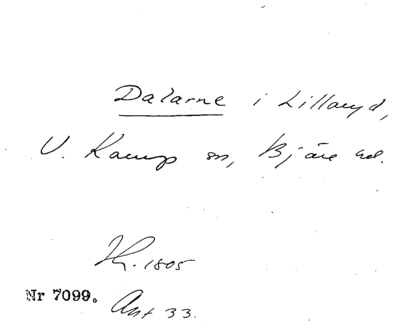 Dalarne i Lillaryd,
V. Karup sn, Bjäre hd.
1805
Nr 7099.
Ant 33.